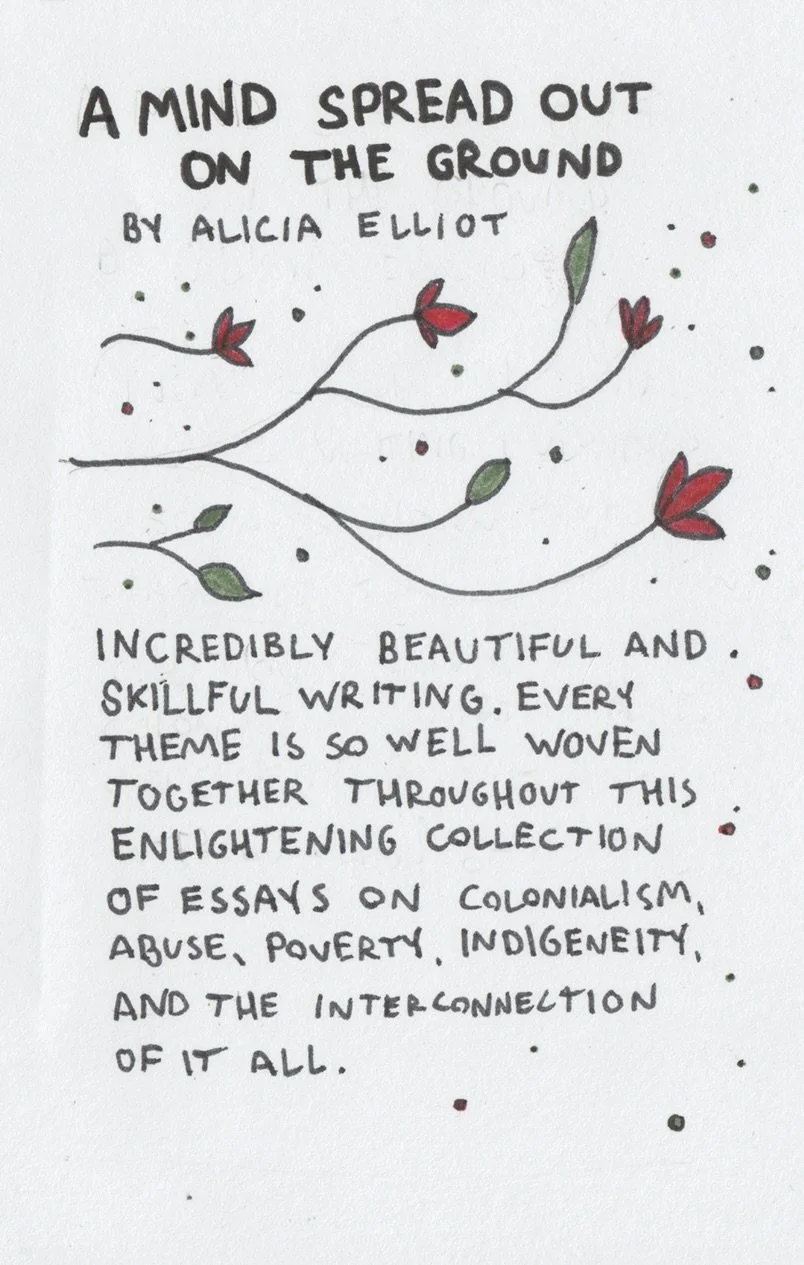 A MIND SPREAD OUT
ON THE GROUND
BY ALICIA ELLIOT
INCREDIBLY BEAUTIFUL AND
SKILLFUL WRITING. EVERY
THEME IS SO WELL WOVEN
TOGETHER THROUGHOUT THIS
ENLIGHTENING COLLECTION
OF ESSAYS ON COLONIALISM,
ABUSE, POVERTY, INDIGENEITY,
AND THE INTERCONNECTION
OF IT ALL.